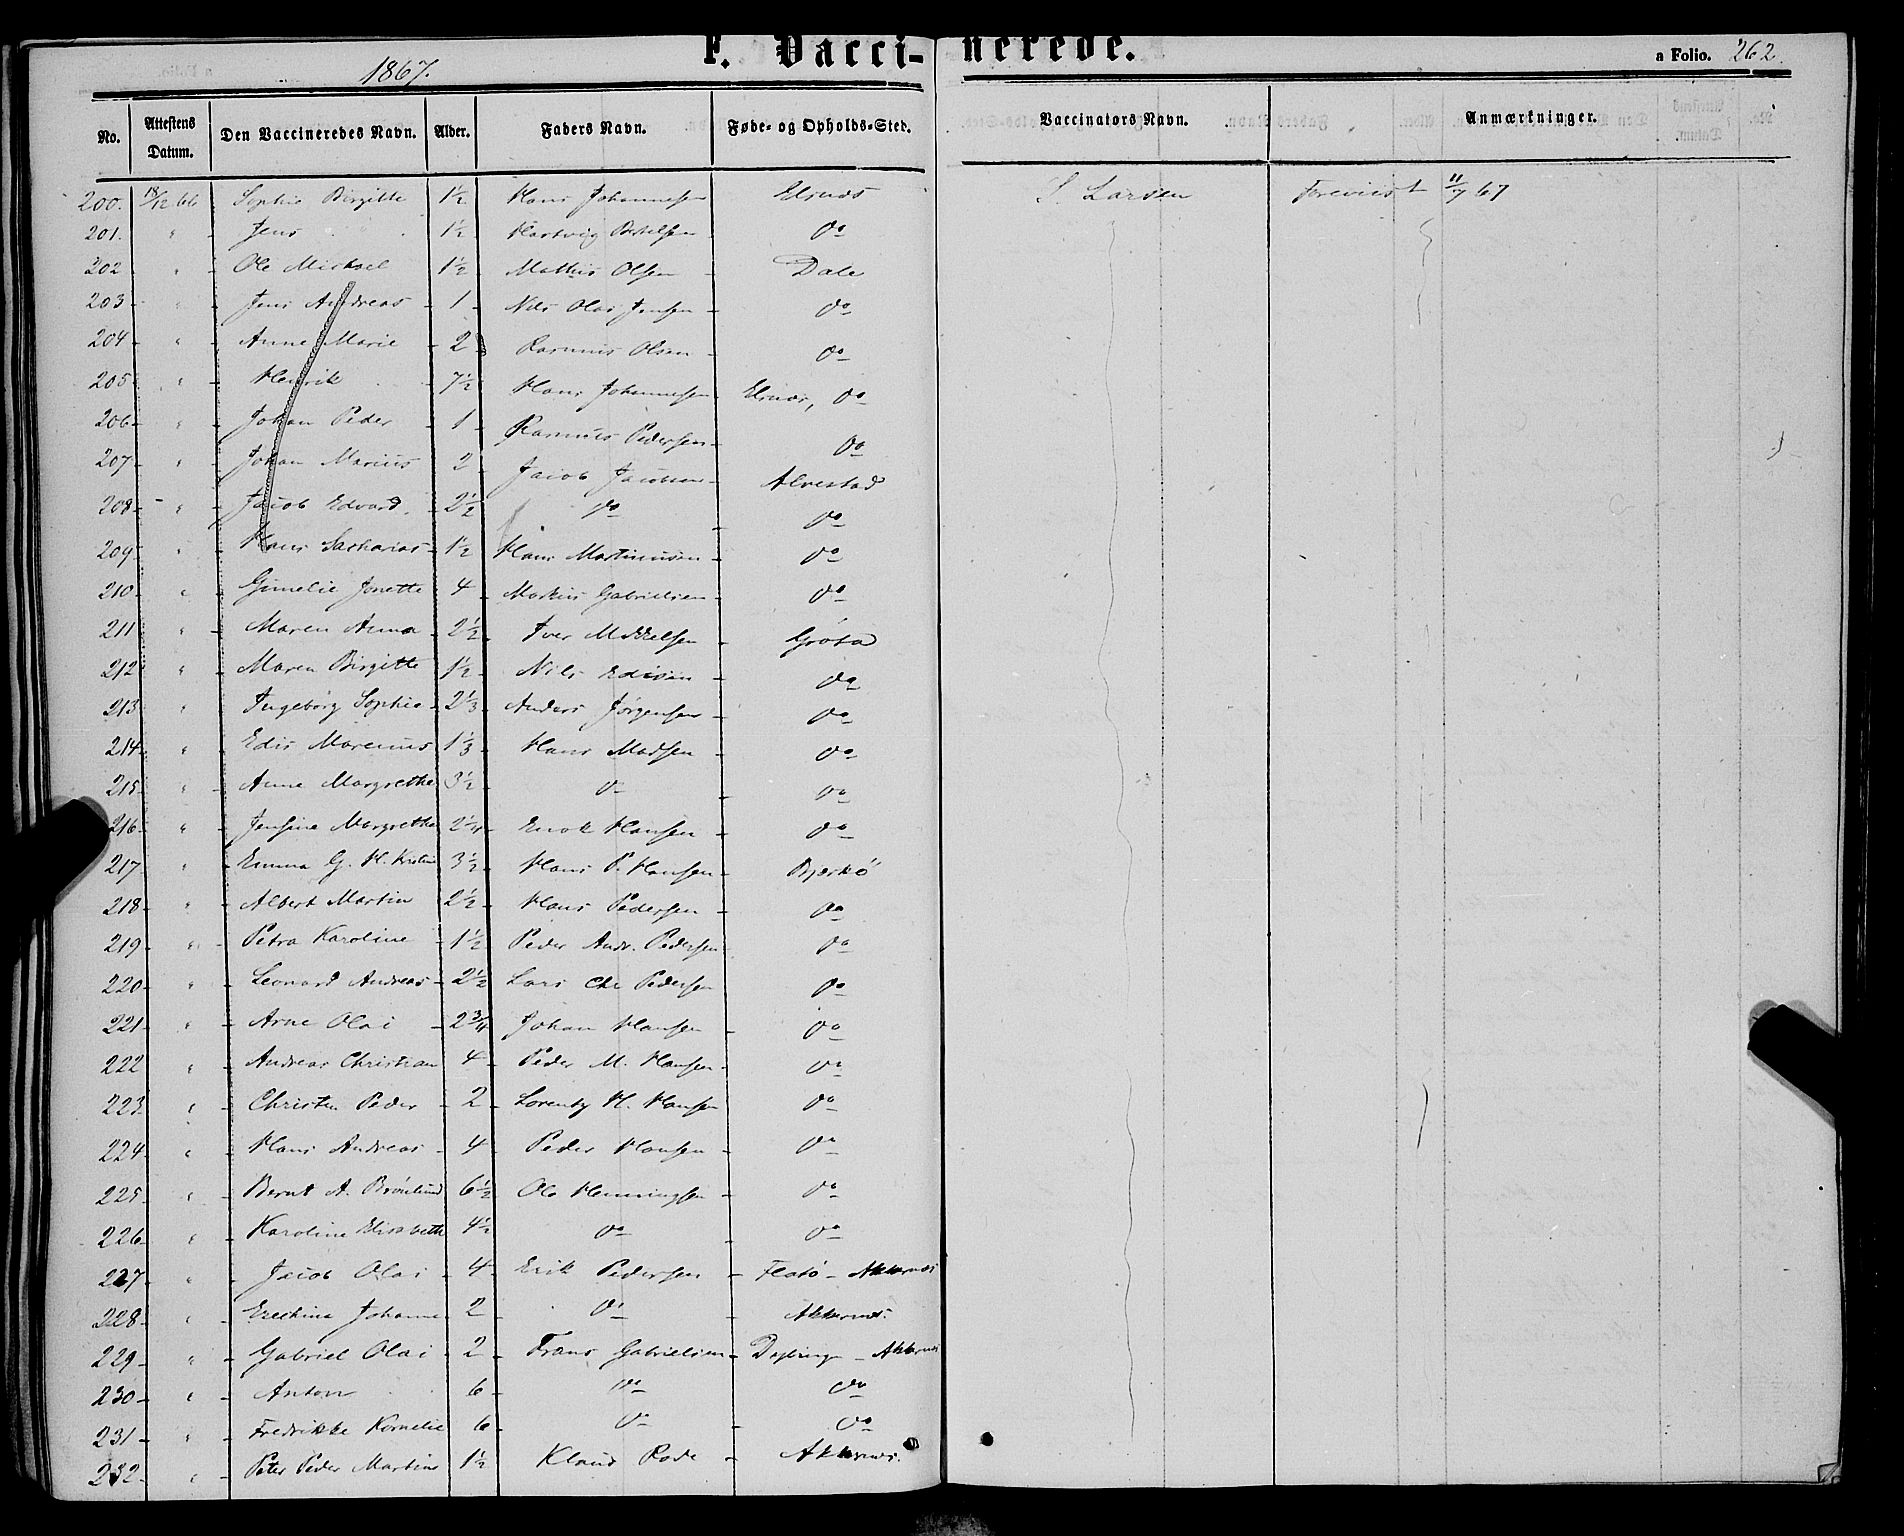 1867. F. Vaccinerede. a Folio. 262.
No. Attestens Datum. Den Vaccineredes Navn. Alder. Faders Navn. Føde- og Opholds-Sted. Vaccinators Navn. Anmærkninger.
200. 18/12 66 Sophie Birgitte 1½ Hans Johannessen Elsnæs S. Larsen Foreviist 11/7 67
201. " Jens 1½ Hartvig Bertelsen do
202 " Ole Mickael 1½ Mathis Olsen Dale
203 " Jens Andreas 1 Nils Olai Jensen do
204 " Anne Marie 2 Rasmus Olsen do
205 " Henrik 7½ Hans Johannessen Elsnæs, do
206 " Johan Peder 1 Rasmus Pedersen do
207 " Johan Marius 2 Jacob Jacobsen Alvestad
208 " Jacob Edvard 2½ do do
209 " Hans Sacharias 1½ Hans Martinusen do
210 " Gunelie Jonette 4 Markus Gabrielsen do
211 " Maren Anna 2½ Iver Mikkelsen Gröta
212 " Maren Birgitte 1½ Nils Edisen do
213 " Ingeborg Sophie 2⅓ Anders Jørgensen do
214 " Edis Marenius 1⅓ Hans Madsen do
215 " Anne Margrethe 3½ do do
216 " Jensine Margrethe 2¼ Enok Hansen do
217 " Emma G. H. 3½ Hans P. Hansen Bjerkö
218 " Albert Martin 2½ Hans Pedersen do
219 " Petra Karoline 1½ Peder Andr. Pedersen do
220 " Leonard Andreas 2½ Lars Chr Pedersen do
221 " Arne Olai 2¾ Johan Hansen do
222 " Andreas Christian 4 Peder M. Hansen do
223 " Christen Peder 2 Lorentz H. Hansen do
224 " Hans Andreas 4 Peder Hansen do
225 " Bernt A. Brönlund 6½ Ole Henningsen do
226 " Karoline Elisabeth 4½ do do
227 " Jacob Olai 4 Erik Pedersen Flatö - Akkernæs
228 " Johanne 2 do Akkernæs.
229 " Gabriel Olai 2 Frans Gabrielsen - Akkernæs
230 " Anton 6 do do
231 " Fredrikke Kornelie 6 do do
232 " Peter Peder Martin 1½ Klaus Rode Akkernæs.